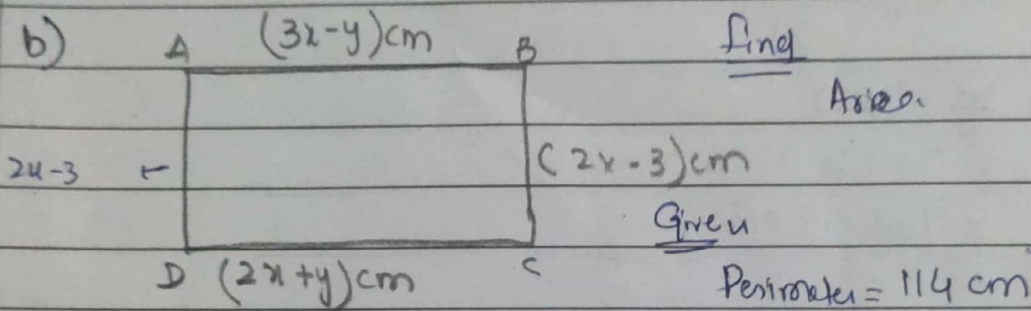 b) A (3x-y)cm B find
Area.
2x-3 (2x-3)cm
Given
D (2x+y)cm C Perimeter = 114 cm